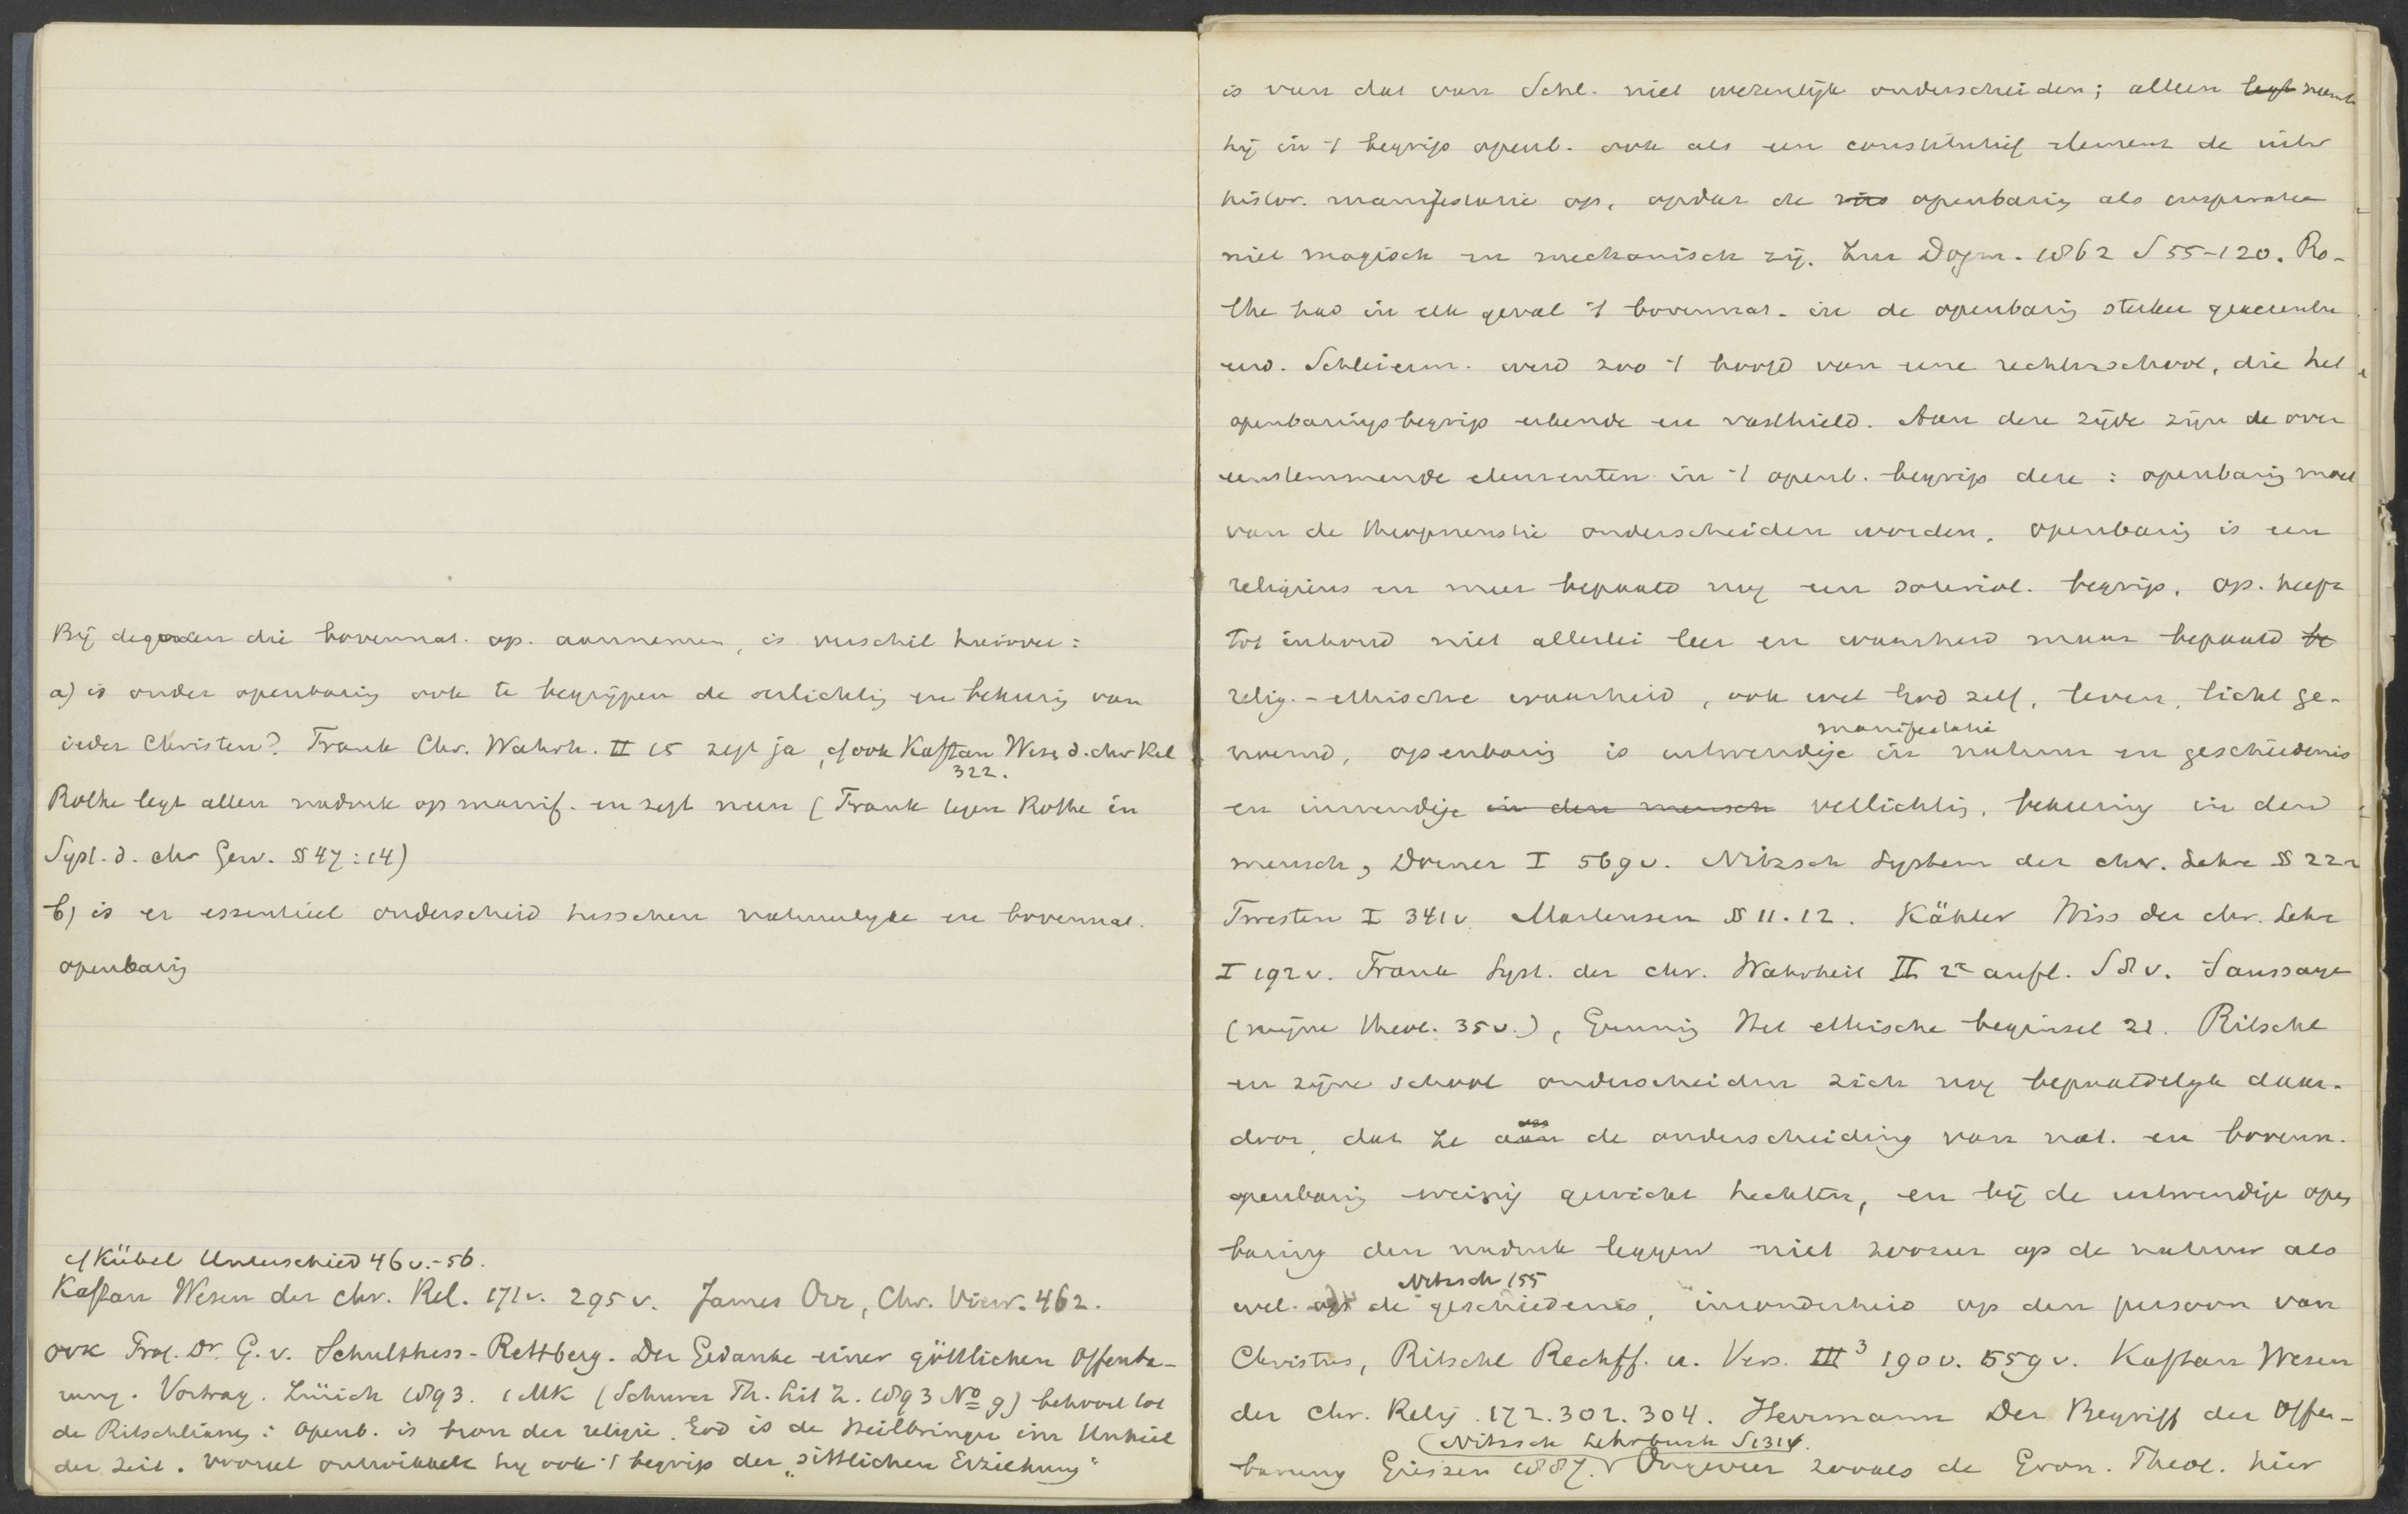 Bij degenen die bovennat. op. aannemen, is verschil hierover:
a) is onder openbaring ook te begrijpen de verlichting en bekeering van
ieder Christen? Frank Chr. Wahrh. II 15 zegt ja, cf ook Kaftan Wesen d. chr Rel
322.
Rothe legt alleen nadruk op manif. en zegt neen (Frank tegen Rothe in
Syst. d. chr Gew. § 47:14)
b) is er essentieel onderscheid tusschen natuurlijke en bovennat.
openbaring
cf Kübel Unterschied 46 v.-56.
Kaftan Wesen der chr. Rel. 171 v. 295 v. James Orr, Chr. View. 462.
ook Prof. Dr. G. v. Schulthess-Rettberg. Der Gedanke einer göttlichen Offenba-
rung. Vortrag. Zürich 1893. 1 MK (Schurer Th. Lit Z. 1893 No 9) behoort tot
de Ritschlianen: openb. is bron der religie. God is de Heilbringer im Unheil
der Zeit. vooral ontwikkelt hij ook 't begrip der „sittlichen Erziehung"
is van dat van Schl. niet wezenlijk onderscheiden; alleen legt neemt
hij in 't begrip openb. ook als een constitutief element de uitw
histor. manifestatie op, opdat de openbaring als inspiratie
niet magisch en mechanisch zij. Zur Dogm. 1862 S 55-120. Ro-
the had in elk geval 't bovennat. in de openbaring sterker geaccentu
eerd. Schleierm. werd zoo 't hoofd van eene rechterschool, die het
openbaringsbegrip erkende en vasthield. Aan deze zijde zijn de over
eenstemmende elementen in 't openb. begrip deze: openbaring moet
van de theopneustie onderscheiden worden, openbaring is een
religieus en meer bepaald nog een soteriol. begrip, op. heeft
tot inhoud niet allerlei leer en waarheid maar bepaald be
relig.-ethische waarheid, ook wel God zelf, leven, licht ge-
manifestatie
noemd, openbaring is uitwendige in natuur en geschiedenis
en inwendige in den mensch verlichting, bekeering in den
mensch, Dorner I 569 v. Nitzsch System der chr. Lehre § 22
Twesten I 341 v. Martensen § 11.12. Kähler Wiss der chr. Lehre
I 192 v. Frank Syst. der chr. Wahrheit II 2e aufl. S 8 v. Saussaye
(mijne theol. 35 v.), Gunning Het ethische beginsel 21. Ritschl
en zijne school onderscheiden zich nog bepaaldelijk daar-
door, dat ze aan de onderscheiding van nat. en bovenn.
openbaring weinig gewicht hechten, en bij de uitwendige open
baring den nadruk leggen niet zoozeer op de natuur als
Nitzsch 155
wel op de geschiedenis, inzonderheid op den persoon van
Christus, Ritschl Rechtf. u. Vers. III³ 190 v. 559 v. Kaftan Wesen
der Chr. Relig. 172. 302. 304. Herrmann Der Begriff der Offen-
(Nitzsch Lehrbuch S 131 f.
barung Giessen 1887. Ongeveer zooals de Evan. Theol. hier